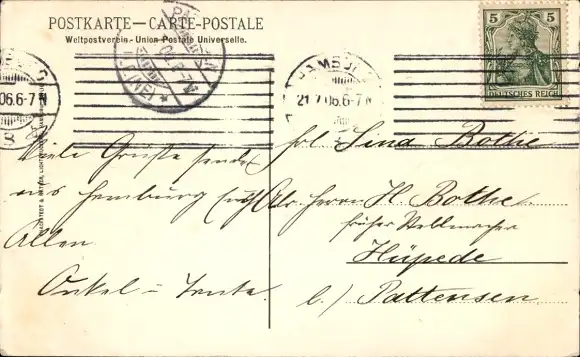 POSTKARTE — CARTE-POSTALE
Weltpostverein - Union Postale Universelle.
5 5
DEUTSCHES REICH
HAMBURG
06.6-7N
21.7.06.6-7N
Viele Grüße sendet
aus Hamburg Euch
Allen
Onkel = Tante.
Frl. Lina Bothe
Adr. Herrn H. Bothe
früher Stellmacher
Hüpede
b./ Pattensen